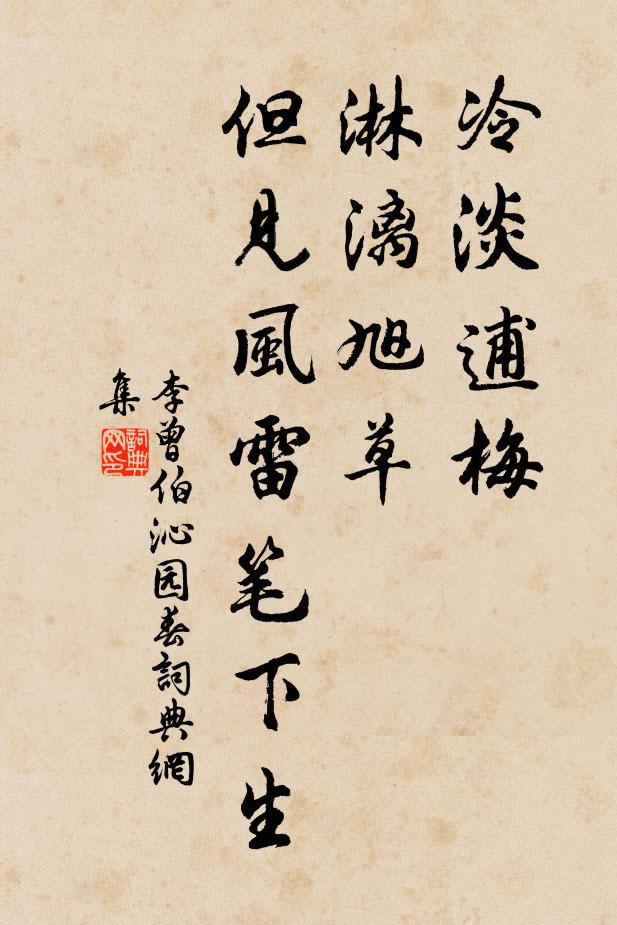 冷淡逋梅
淋漓旭草
但見風雷笔下生
李曾伯沁园春詞典網
集
詞典
网印